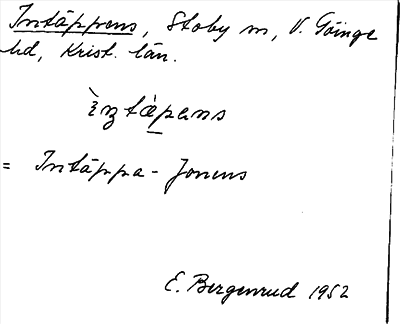 Intäppens, Stoby sn, V. Göinge
hd, Krist. län.
ìntäpens
= Intäppa-Jonens
E. Bergenrud 1952